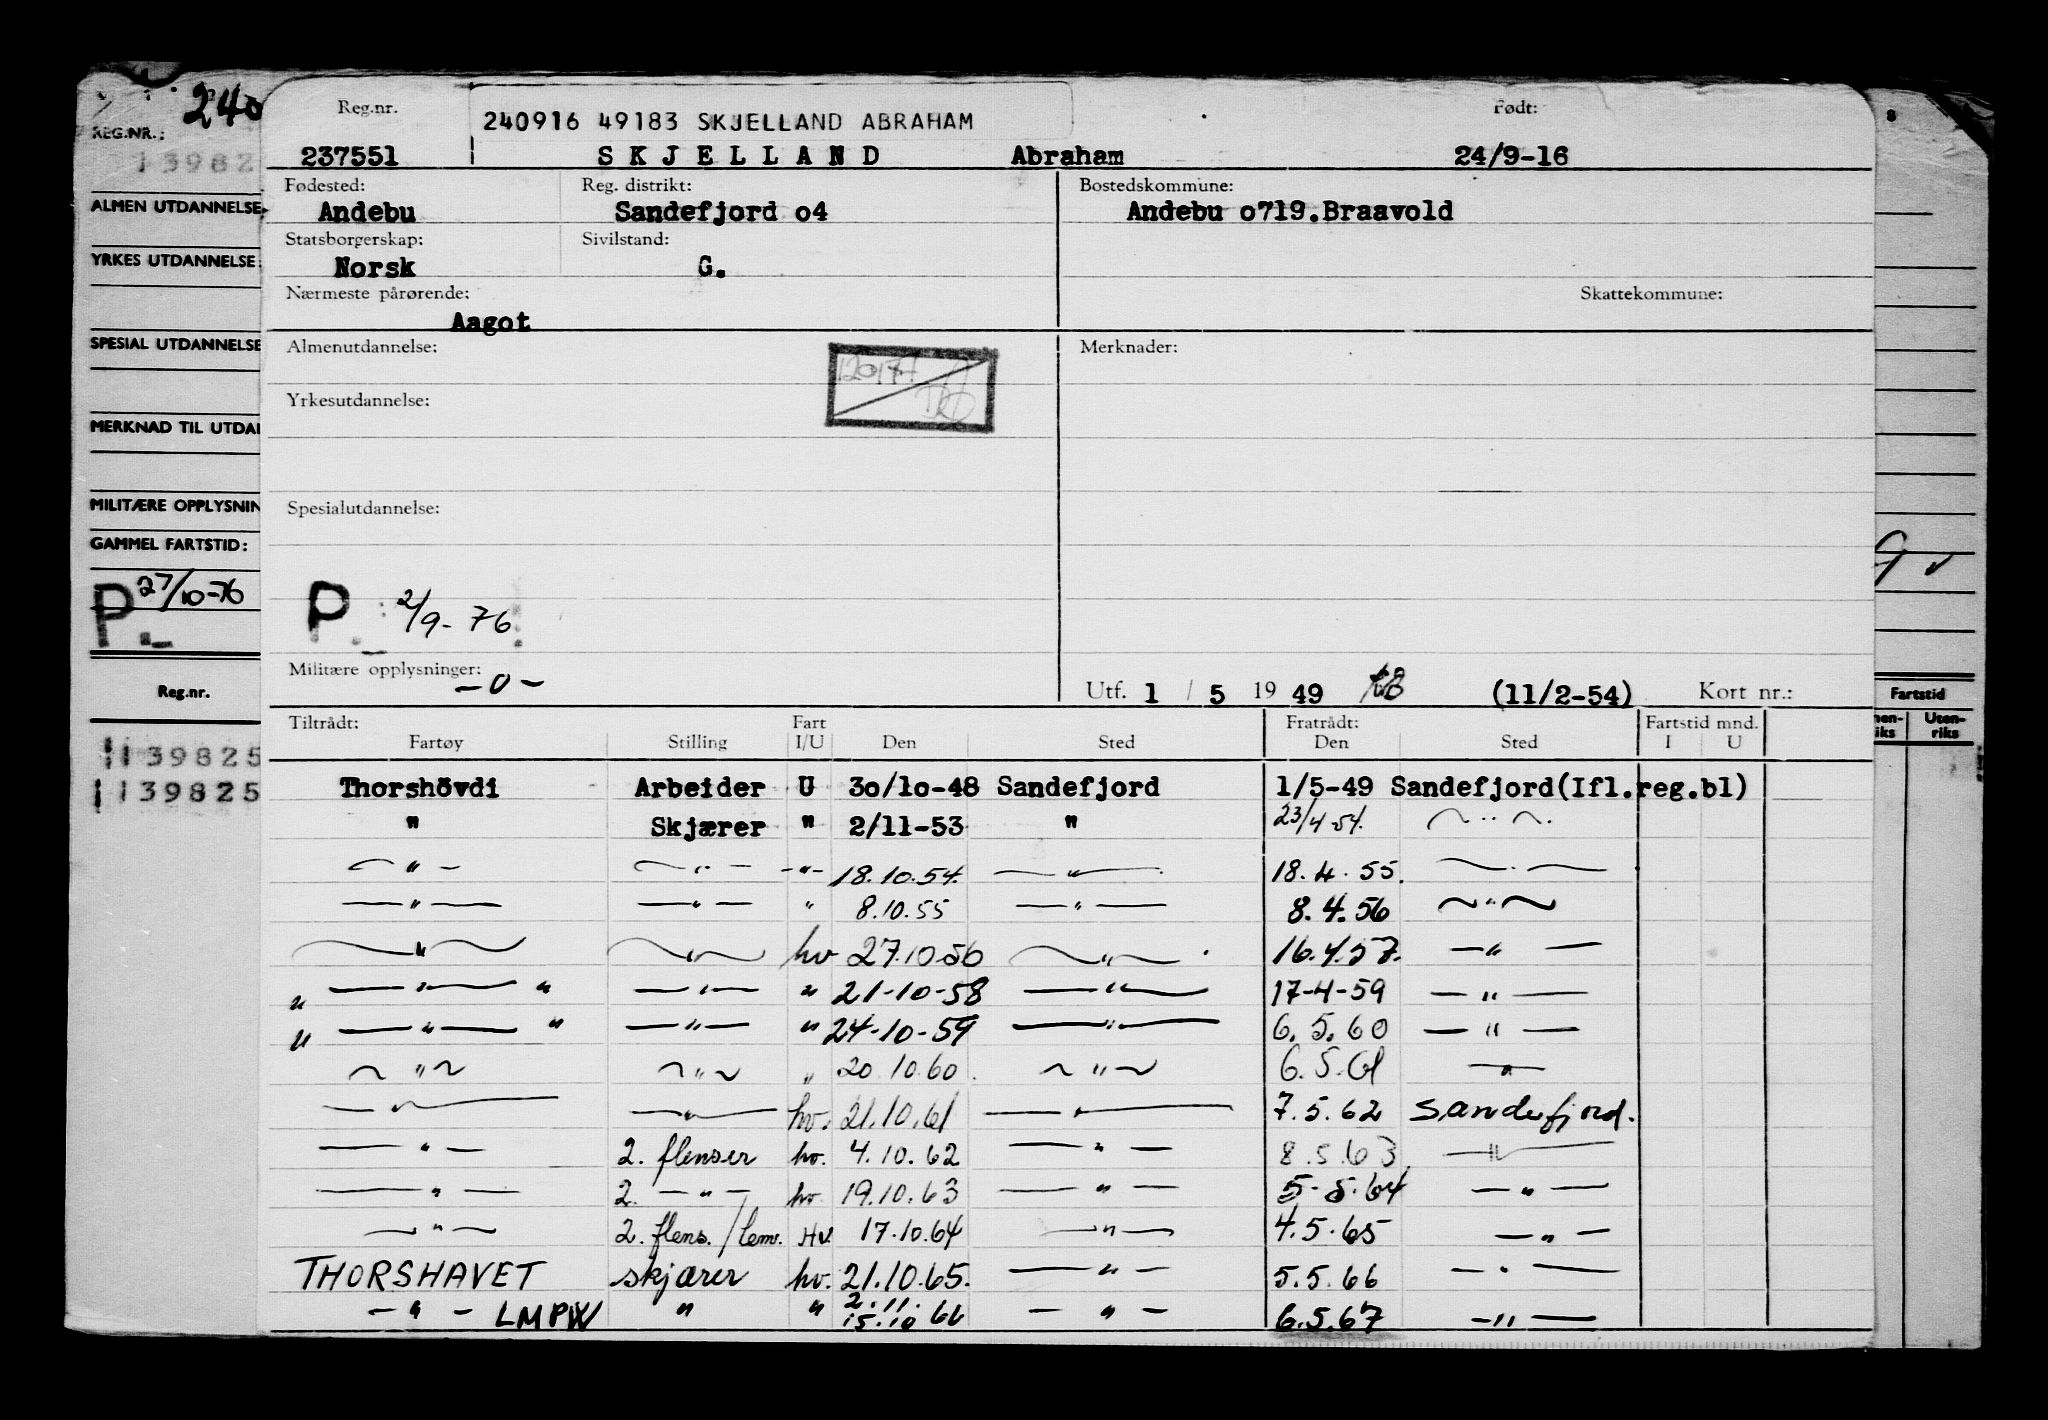 240
REG.NR.:
139825
ALMEN UTDANNELSE
YRKES UTDANNELSE:
SPESIAL UTDANNELSE
MERKNAD TIL UTDAN
MILITÆRE OPPLYSNIN
GAMMEL FARTSTID:
P. 27/10-76
Reg.nr.
139825
139825
Reg.nr. 240916 49183 SKJELLAND ABRAHAM Født:
237551 SKJELLAND Abraham 24/9-16
Fødested: Reg. distrikt: Bostedskommune:
Andebu Sandefjord o4 Andebu o719.Braavold
Statsborgerskap: Sivilstand:
Norsk G.
Nærmeste pårørende: Skattekommune:
Aagot
Almenutdannelse: Merknader:
Yrkesutdannelse:
Spesialutdannelse:
P. 2/9-76
Militære opplysninger: -0-
Utf. 1 / 5 19 49 (11/2-54) Kort nr.:
Tiltrådt: Fart Fratrådt: Fartstid mnd.
Fartøy Stilling I/U Den Sted Den Sted I U
Thorshövdi Arbeider U 3o/1o-48 Sandefjord 1/5-49 Sandefjord(Ifl.reg.bl)
" Skjærer " 2/11-53 " 23/4-54. "
-"- -"- -"- 18.10.54. -"- 18.4.55. -"-
-"- -"- " 8.10.55 -"- 8.4.56 -"-
-"- -"- hv 27.10.56 -"- 16.4.57. -"-
" -"- " -"- " 21-10-58 -"- 17-4-59 -"-
" -"- " -"- " 24-10-59 -"- 6.5.60 -"-
-"- -"- " 20.10.60. -"- 6.5.61 -"-
-"- -"- hv. 21.10.61 -"- 7.5.62 Sandefjord.
-"- 2. flenser hv. 4.10.62 -"- 8.5.63 -"-
-"- 2. -"- hv. 19.10.63 -"- 5-5.64 -"-
-"- 2. flens./lem. HV. 17.10.64 -"- 4.5.65 -"-
THORSHAVET skjærer hv. 21.10.65. -"- 5.5.66 -"-
-"- LMPW " " 2.11. 15.10 66 -"- 6.5.67 -"-
Fartstid
Uten-
riks